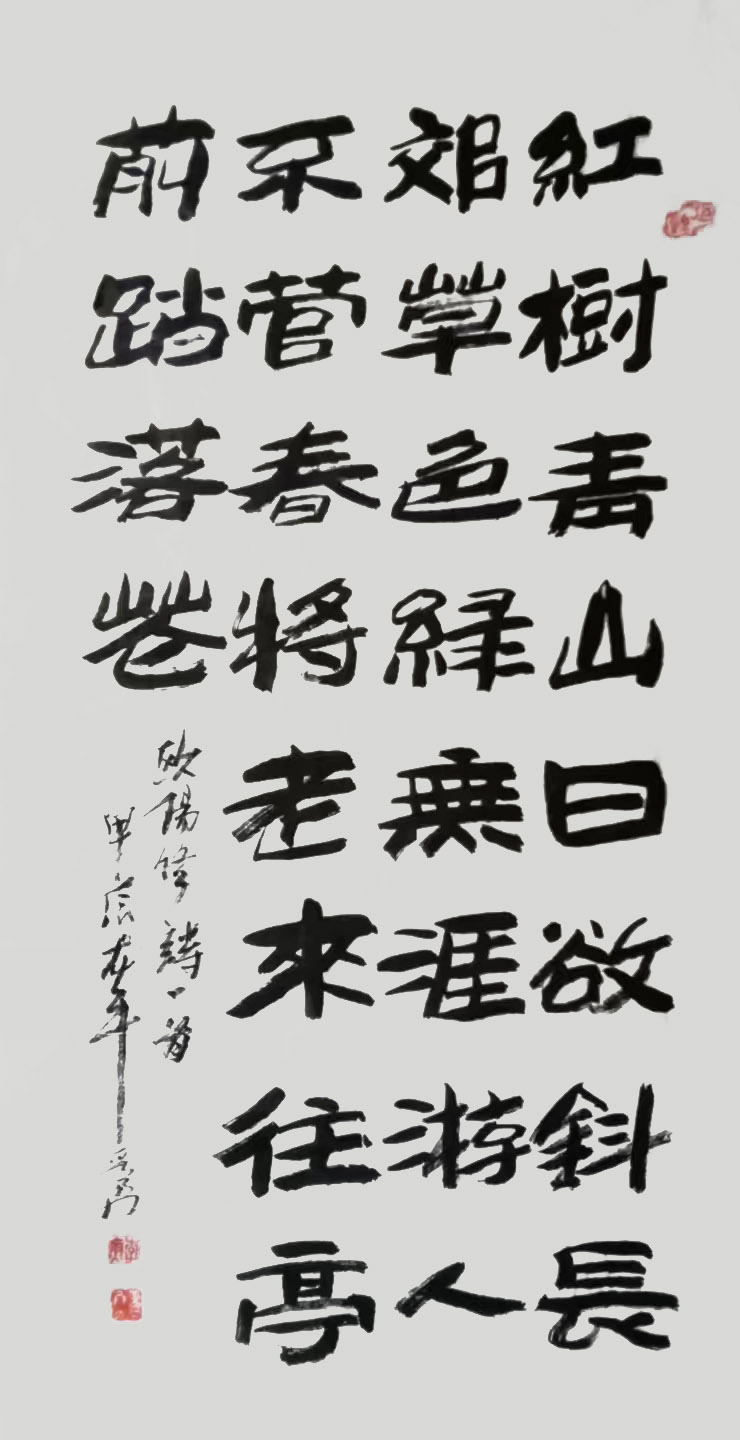 紅樹青山日欲斜長
郊草色緑無涯游人
不管春將老來往亭
前踏落花
欧陽修詩一首
甲辰年